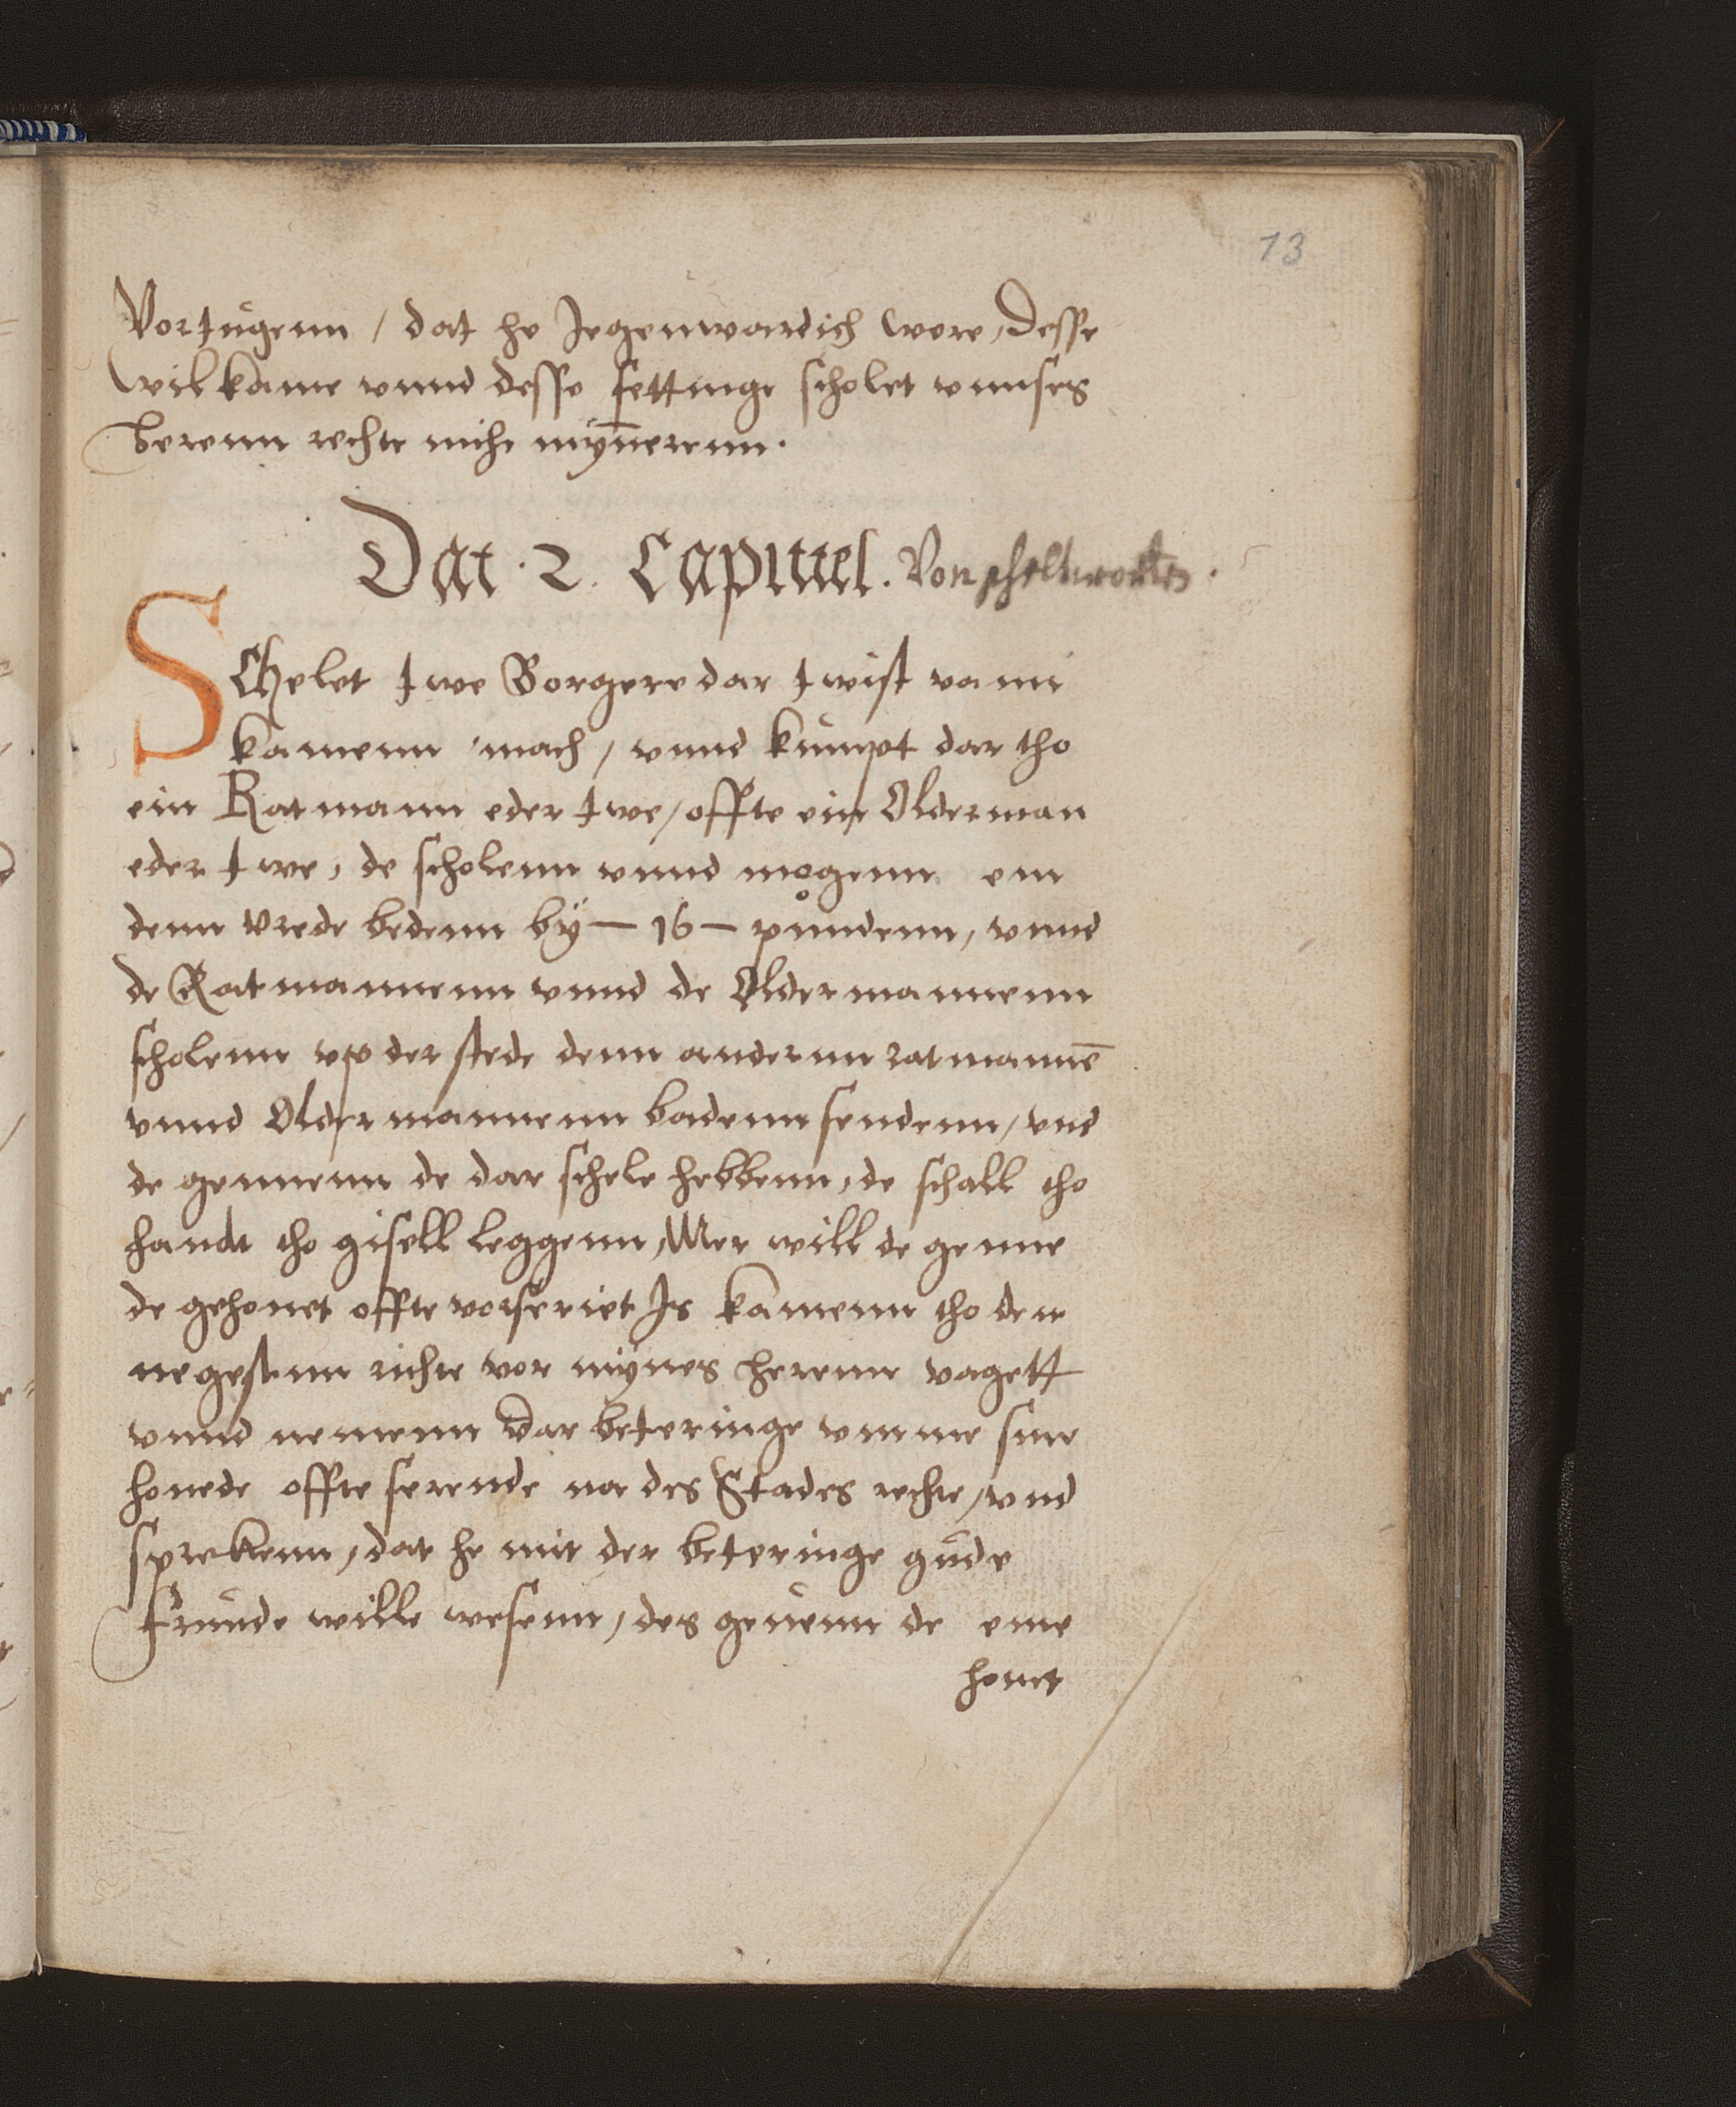 13
Vortugenn / dat he Jegenwardich were, Desse
wilkame vnnd desse settinge scholet vnnses
herenn rechte nicht mynnerenn.
Dat . 2. Capittel. Von scheltworten.
SChelet twe Borgere dar twist vann
kamenn mach, vnnd kumpt dar tho
ein Ratmann eder twe, offte ein Olderman
eder twe, de scholenn vnnd mogenn em
denn vrede bedenn by — 16 — pundenn, vnnd
de Ratmannenn vnnd de Oldermannenn
scholenn vp der stede denn andernn ratmannē
vnnd Oldermannenn badenn sendenn, vnd
de gennenn de dar schele hebbenn, de schall tho
handt tho gisell leggenn, Wer will de genne
de gehonet offte vorseriet Js kamenn tho den
negestenn richte vor mynes herenn vagett
vnnd nemenn dar beteringe vmme sine
honede offte serende na des Stades rechte, vnd
sprekenn, dat he mit der beteringe gude
frunde wille wesenn, des genenn de eme
honet